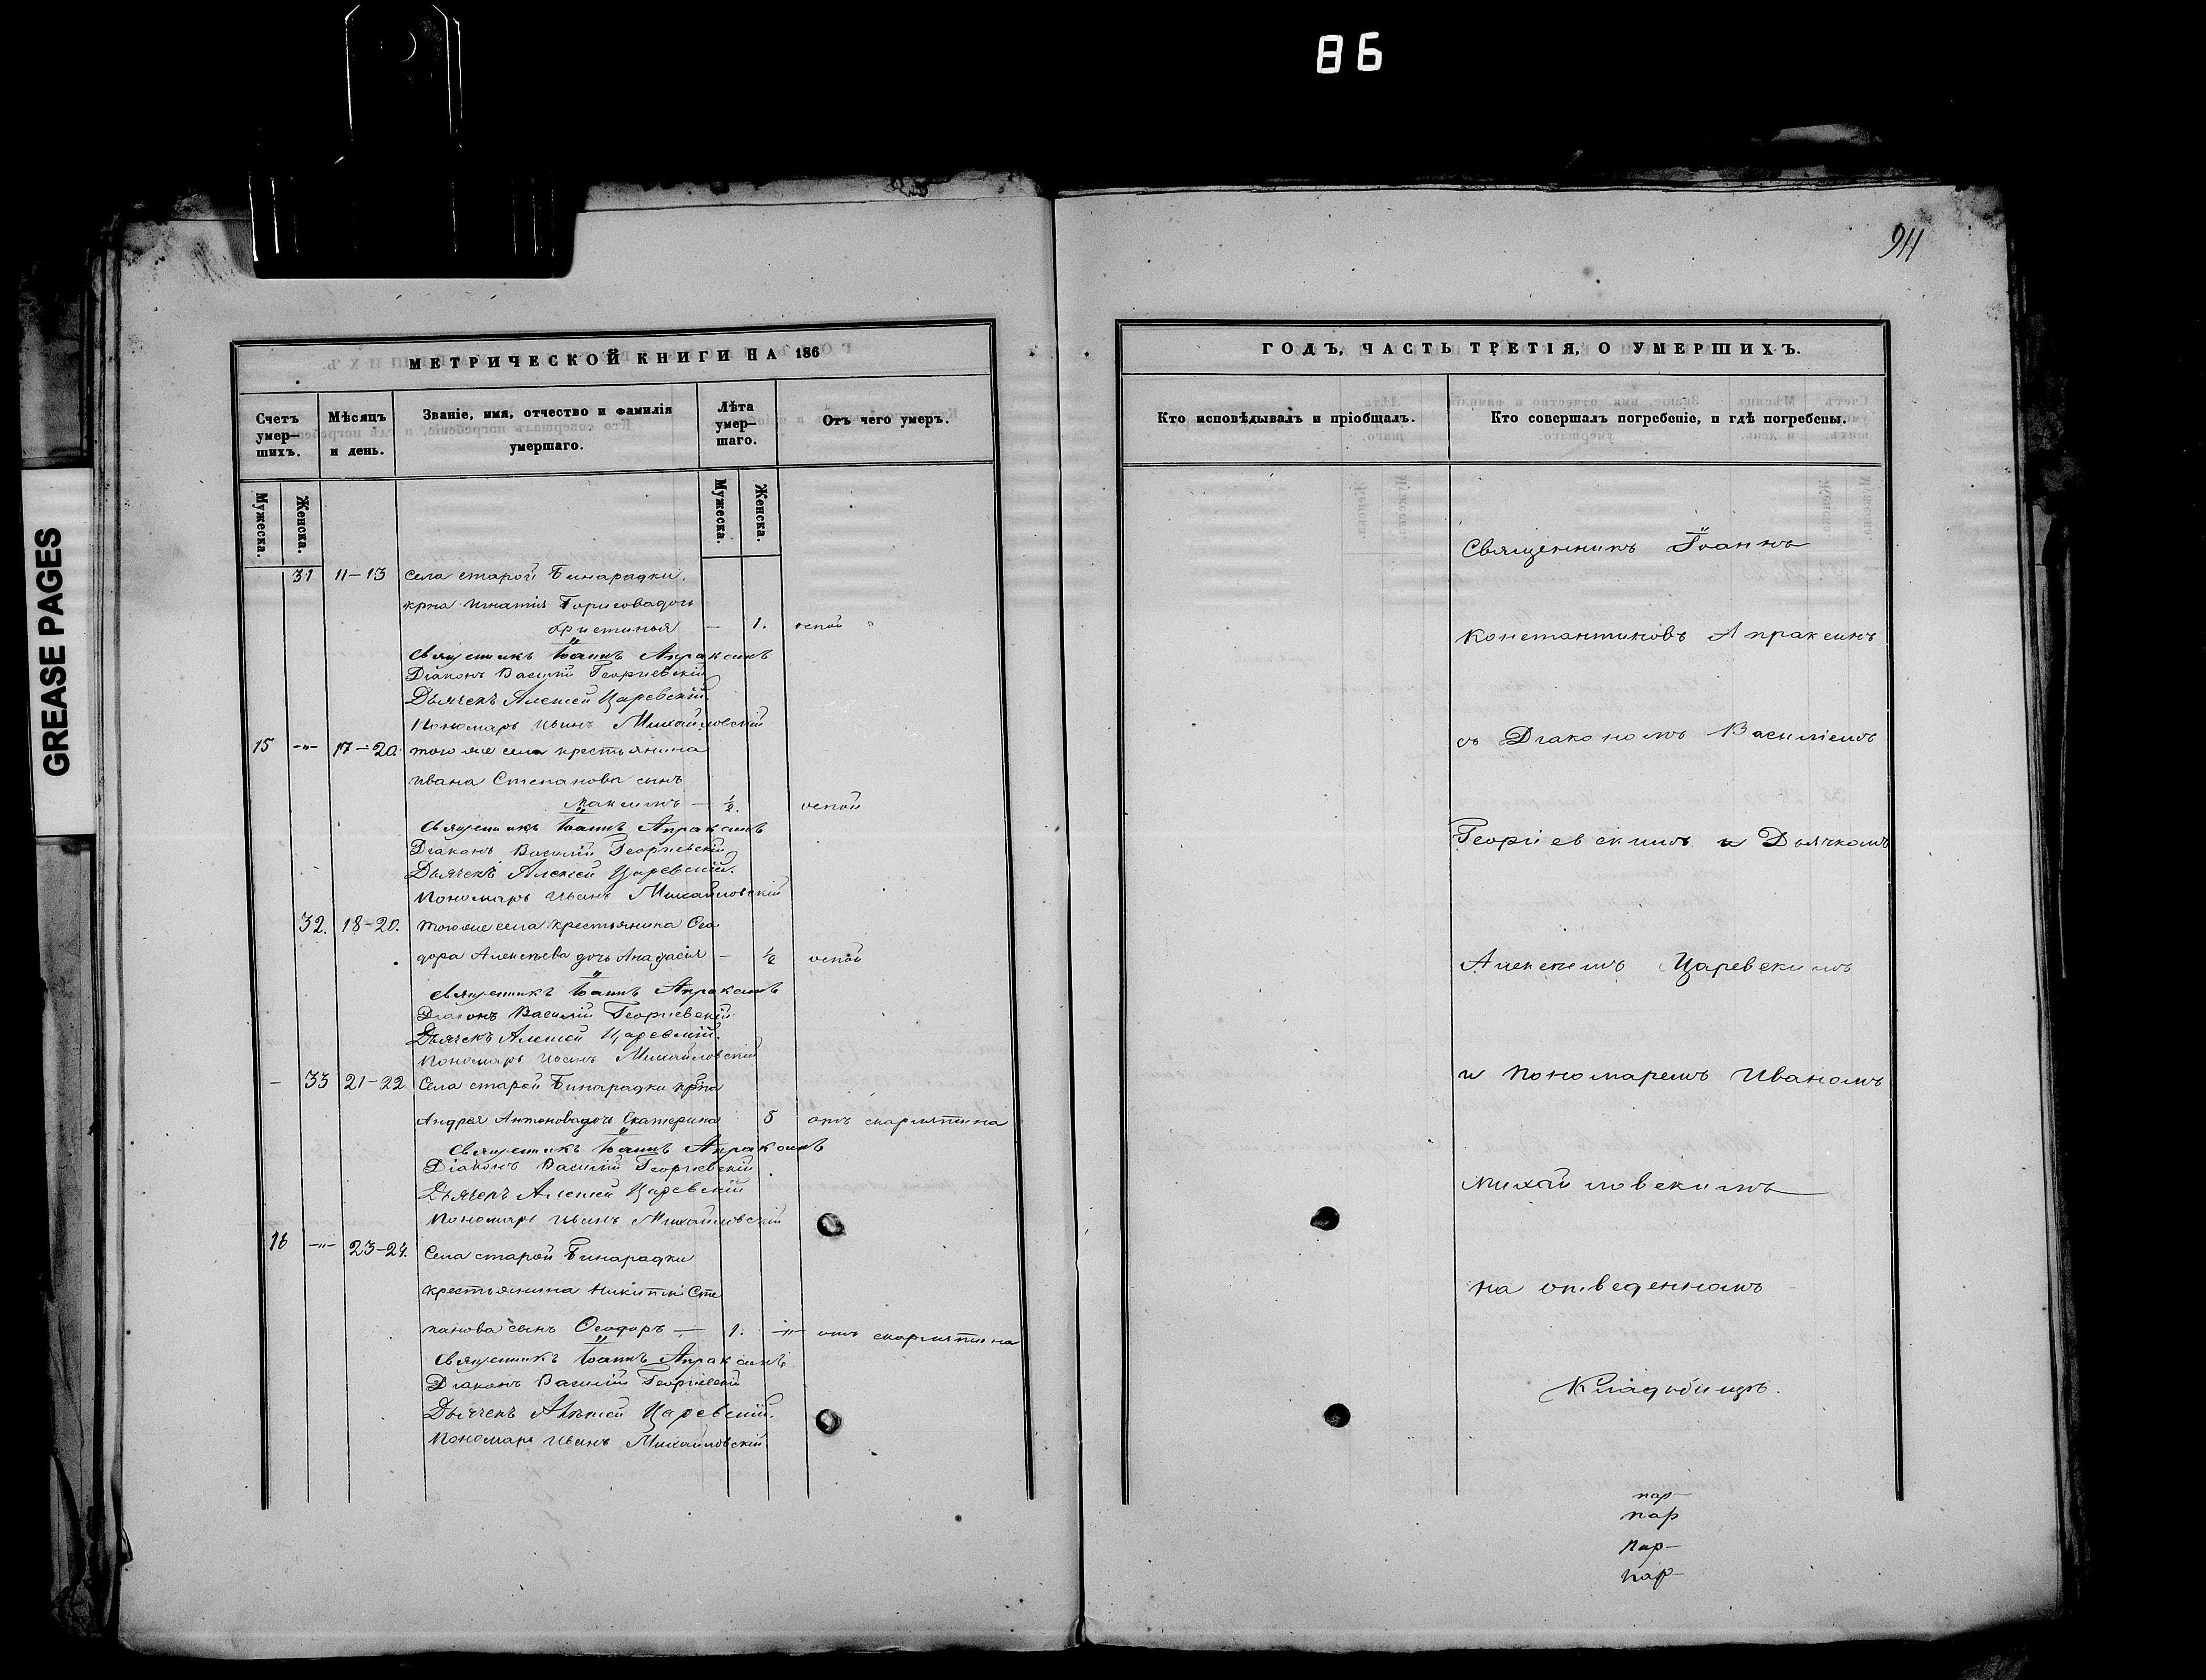 86
GREASE PAGES
911
МЕТРИЧЕСКОЙ КНИГИ НА 186
Счетъ умер-шихъ.
Мѣсяцъ и день.
Званіе, имя, отчество и фамилія умершаго.
Лѣта умер-шаго.
Отъ чего умеръ.
Мужеска.
Женска.
Мужеска.
Женска.
31 11-13 Села старой Бинарадки
крна Игнатія Борисова дочь
Христинья — 1. оспой
Священикъ Іоаннъ Апраксинъ
Діаконъ Василій Георгіевскій
Дьячекъ Алексей Царевскій
Пономарь Иванъ Михайловскій
15 -"- 17-20. тогоже села крестьянина
Ивана Степанова сынъ
Максимъ — ½. оспой
Священикъ Іоаннъ Апраксинъ
Діаконъ Василій Георгіевскій
Дьячекъ Алексей Царевскій.
Пономарь Иванъ Михайловскій
32. 18-20. тогоже села крестьянина Ѳео
дора Алексѣева дочь — ½ оспой
Священикъ Іоаннъ Апраксинъ
Діаконъ Василій Георгіевскій
Дьячекъ Алексей Царевскій.
Пономарь Иванъ Михайловскій
- 33 21-22 Села старой Бинарадки крна
Андрея Антонова дочь Екатерина 5 отъ скарлятина
Священикъ Іоаннъ Апраксинъ
Діаконъ Василій Георгіевскій
Дьячекъ Алексей Царевскій
Пономарь Иванъ Михайловскій
16 -"- 23-24. Села старой Бинарадки
крестьянина Никиты Сте
панова сынъ Ѳеодоръ — 1. -"- отъ скарлятина
Священикъ Іоаннъ Апраксинъ
Діаконъ Василій Георгіевскій
Дьячекъ Алексей Царевскій.
Пономарь Иванъ Михайловскій
ГОДЪ, ЧАСТЬ ТРЕТІЯ, О УМЕРШИХЪ.
Кто исповѣдывалъ и пріобщалъ.
Кто совершалъ погребеніе, и гдѣ погребены.
Священникъ Іоаннъ
Константиновъ Апраксинъ
съ Діакономъ Василіемъ
Георгіевскимъ и Дьячкомъ
Алексеемъ Царевскимъ
и Пономаремъ Иваномъ
Михайловскимъ
на отведенномъ
Кладбищѣ.
пар-
пар
пар-
пар-